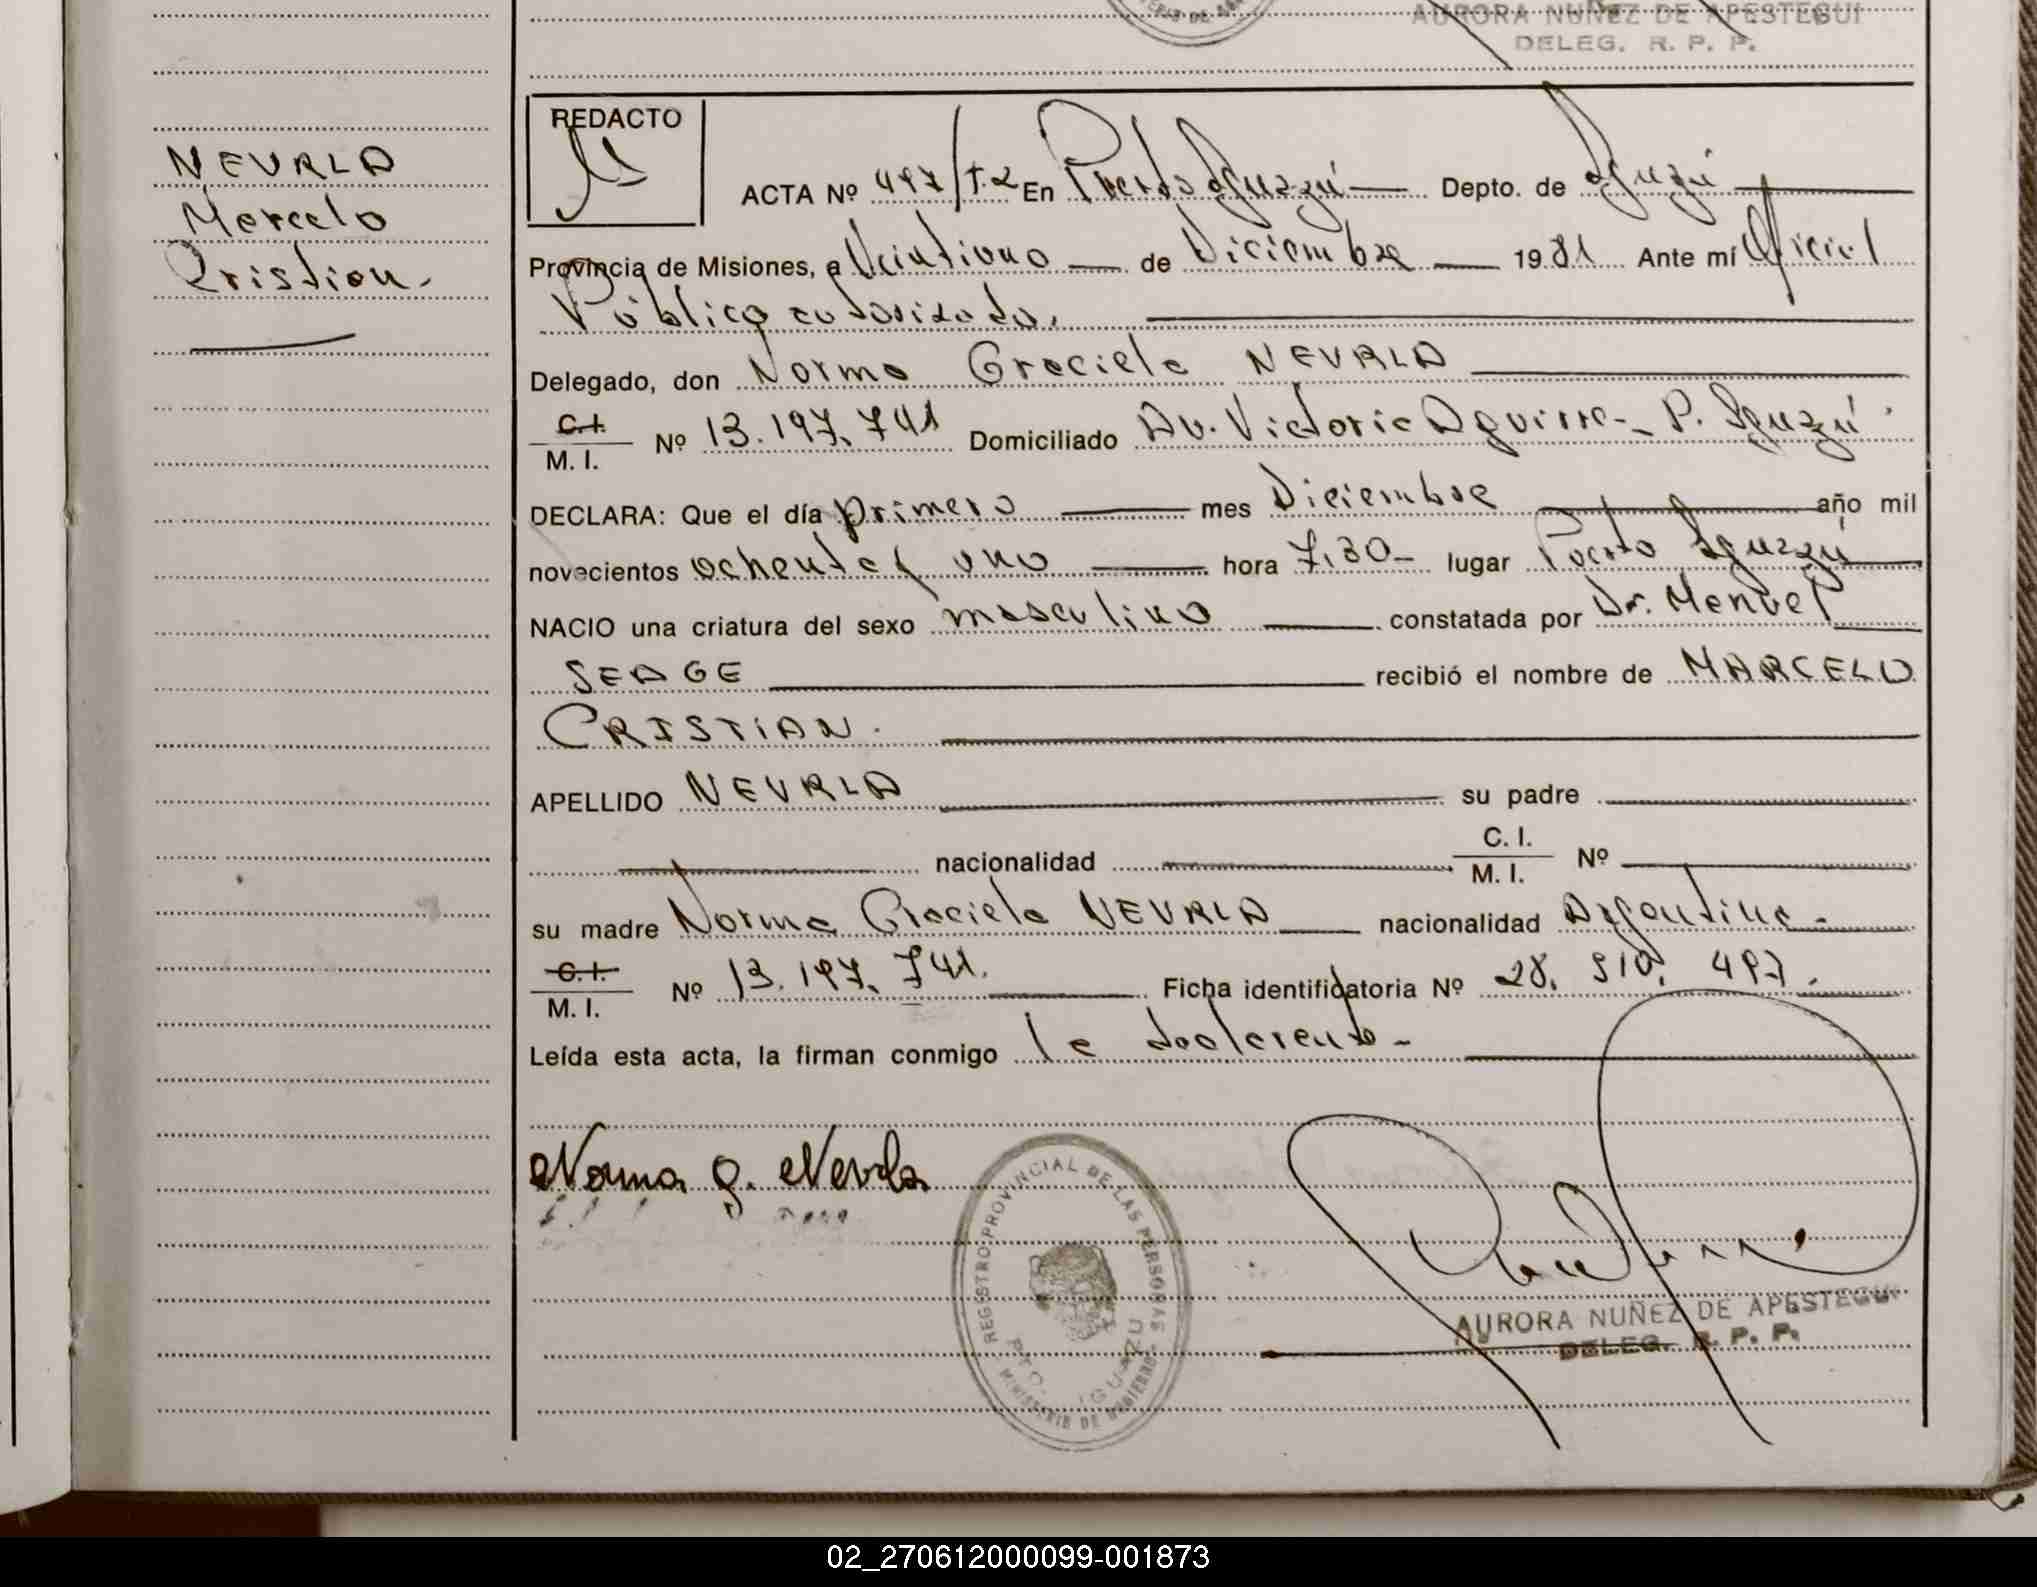 AURORA NUÑEZ DE APESTEGUI
DELEG. R. P. P.
NEVRLA
Marcelo
Cristian.
REDACTO
ACTA Nº 497/T.2 En Puerto Iguazú Depto. de Iguazú
Provincia de Misiones, a Veintiuno de Diciembre 1981 Ante mí Oficial
Público autorizado.
Delegado, don Norma Graciela NEVRLA
C.I. M. I. Nº 13.197.741 Domiciliado Av. Victoria Aguirre - P. Iguazú.
DECLARA: Que el día primero mes Diciembre año mil
novecientos ochenta y uno hora 7,30- lugar Puerto Iguazú
NACIO una criatura del sexo masculino constatada por Dr. Manuel
SEAGE recibió el nombre de MARCELO
CRISTIAN.
APELLIDO NEVRLA su padre
nacionalidad C. I. M. I. Nº
su madre Norma Graciela NEVRLA nacionalidad Argentina-
C.I. M. I. Nº 13.197.741. Ficha identificatoria Nº 28. 910. 497.
Leída esta acta, la firman conmigo la declarante-
Norma G. Nevrla
REGISTRO PROVINCIAL DE LAS PERSONAS
PTO. IGUAZU
MINISTERIO DE GOBIERNO
AURORA NUÑEZ DE APESTEGUI
DELEG. R. P. P.
02_270612000099-001873